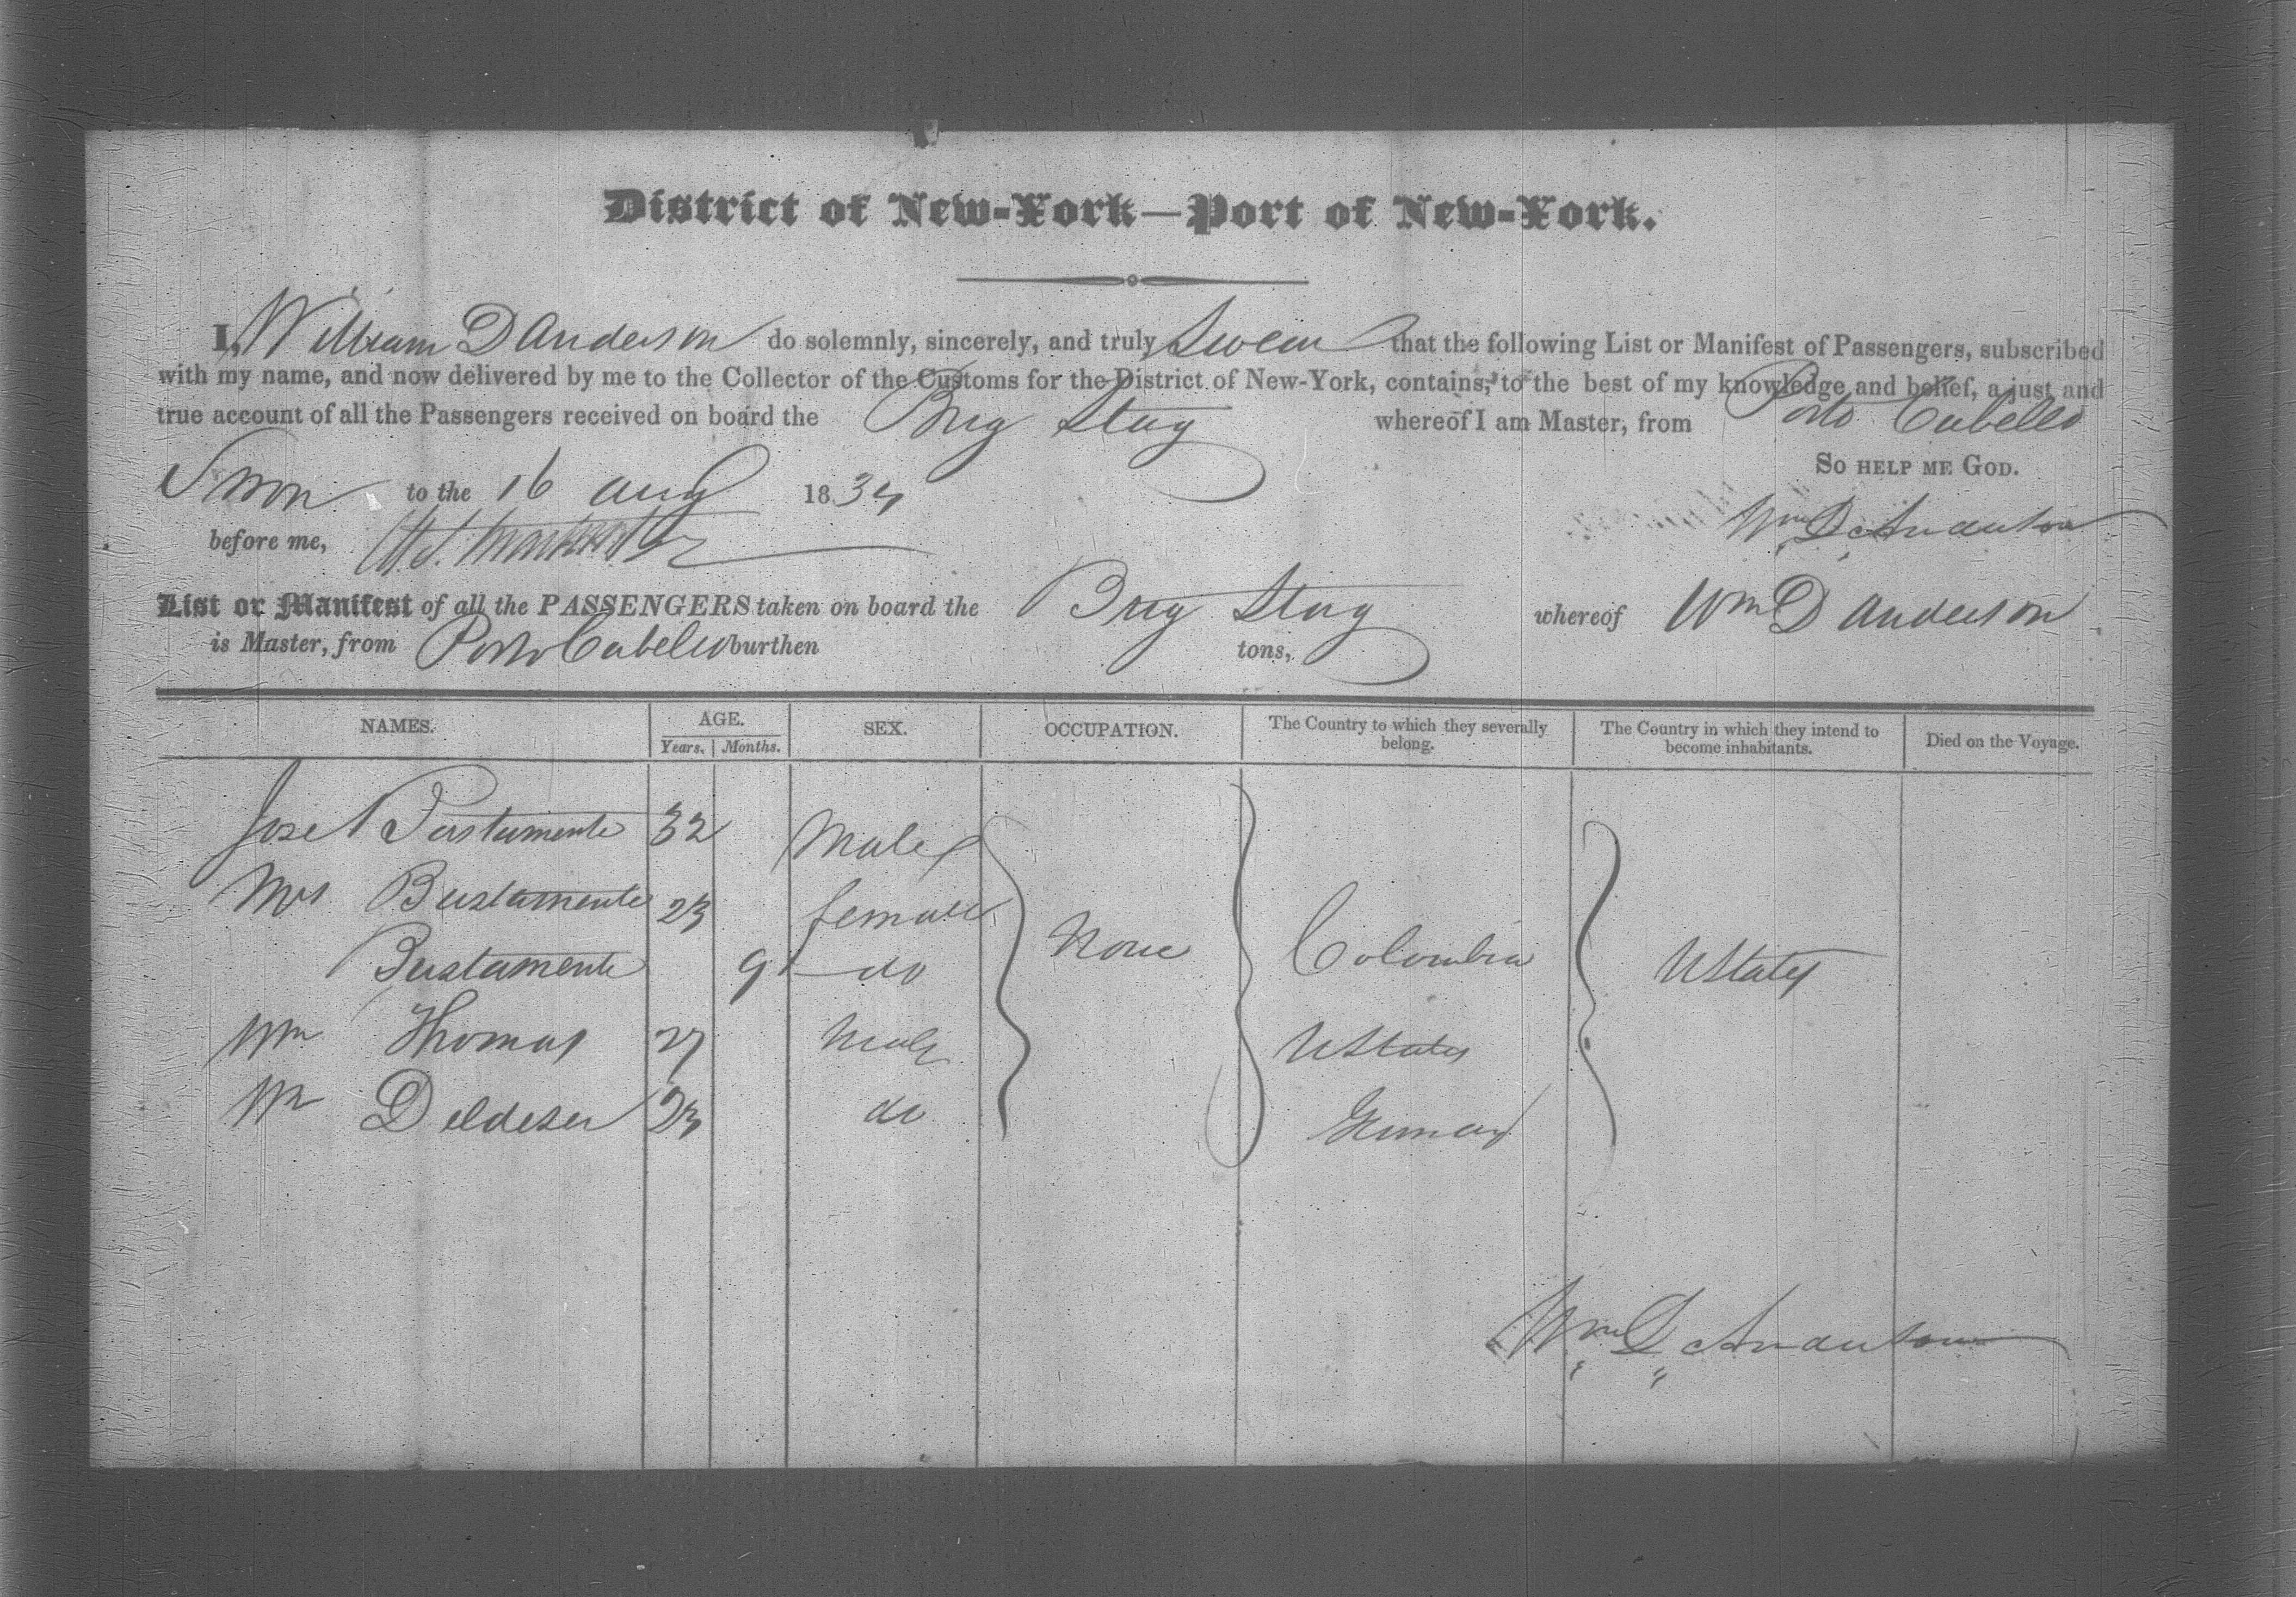 District of New-York—Port of New-York.
I, William D Anderson do solemnly, sincerely, and truly Swear that the following List or Manifest of Passengers, subscribed
with my name, and now delivered by me to the Collector of the Customs for the District of New-York, contains, to the best of my knowledge and belief, a just and
true account of all the Passengers received on board the Brig Stag whereof I am Master, from Porto Cabello
So help me God.
Sworn to the 16 Aug 1834
Wm D Anderson
before me,
List or Manifest of all the PASSENGERS taken on board the Brig Stag whereof Wm D Anderson
is Master, from Porto Cabello burthen tons,
NAMES. AGE. SEX. OCCUPATION. The Country to which they severally belong. The Country in which they intend to become inhabitants. Died on the Voyage.
Years. Months.
Jose Bustamente 32 Male
Mrs Bustamente 23 female
Bustamente 9 do None Colombia UStates
Wm Thomas 27 Male UStates
do Germany
Wm D Anderson